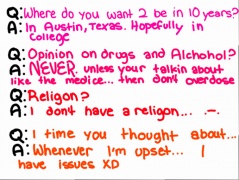 Q: Where do you want 2 be in 10 years?
A: In Austin, Texas. Hopefully in
College
Q: Opinion on drugs and Alchohol?
A: NEVER unless your talkin about
like the medice... then don't overdose
Q: Religon?
A: I don't have a religon... .-.
Q: 1 time you thought about...
A: Whenever I'm upset... I
have issues XD